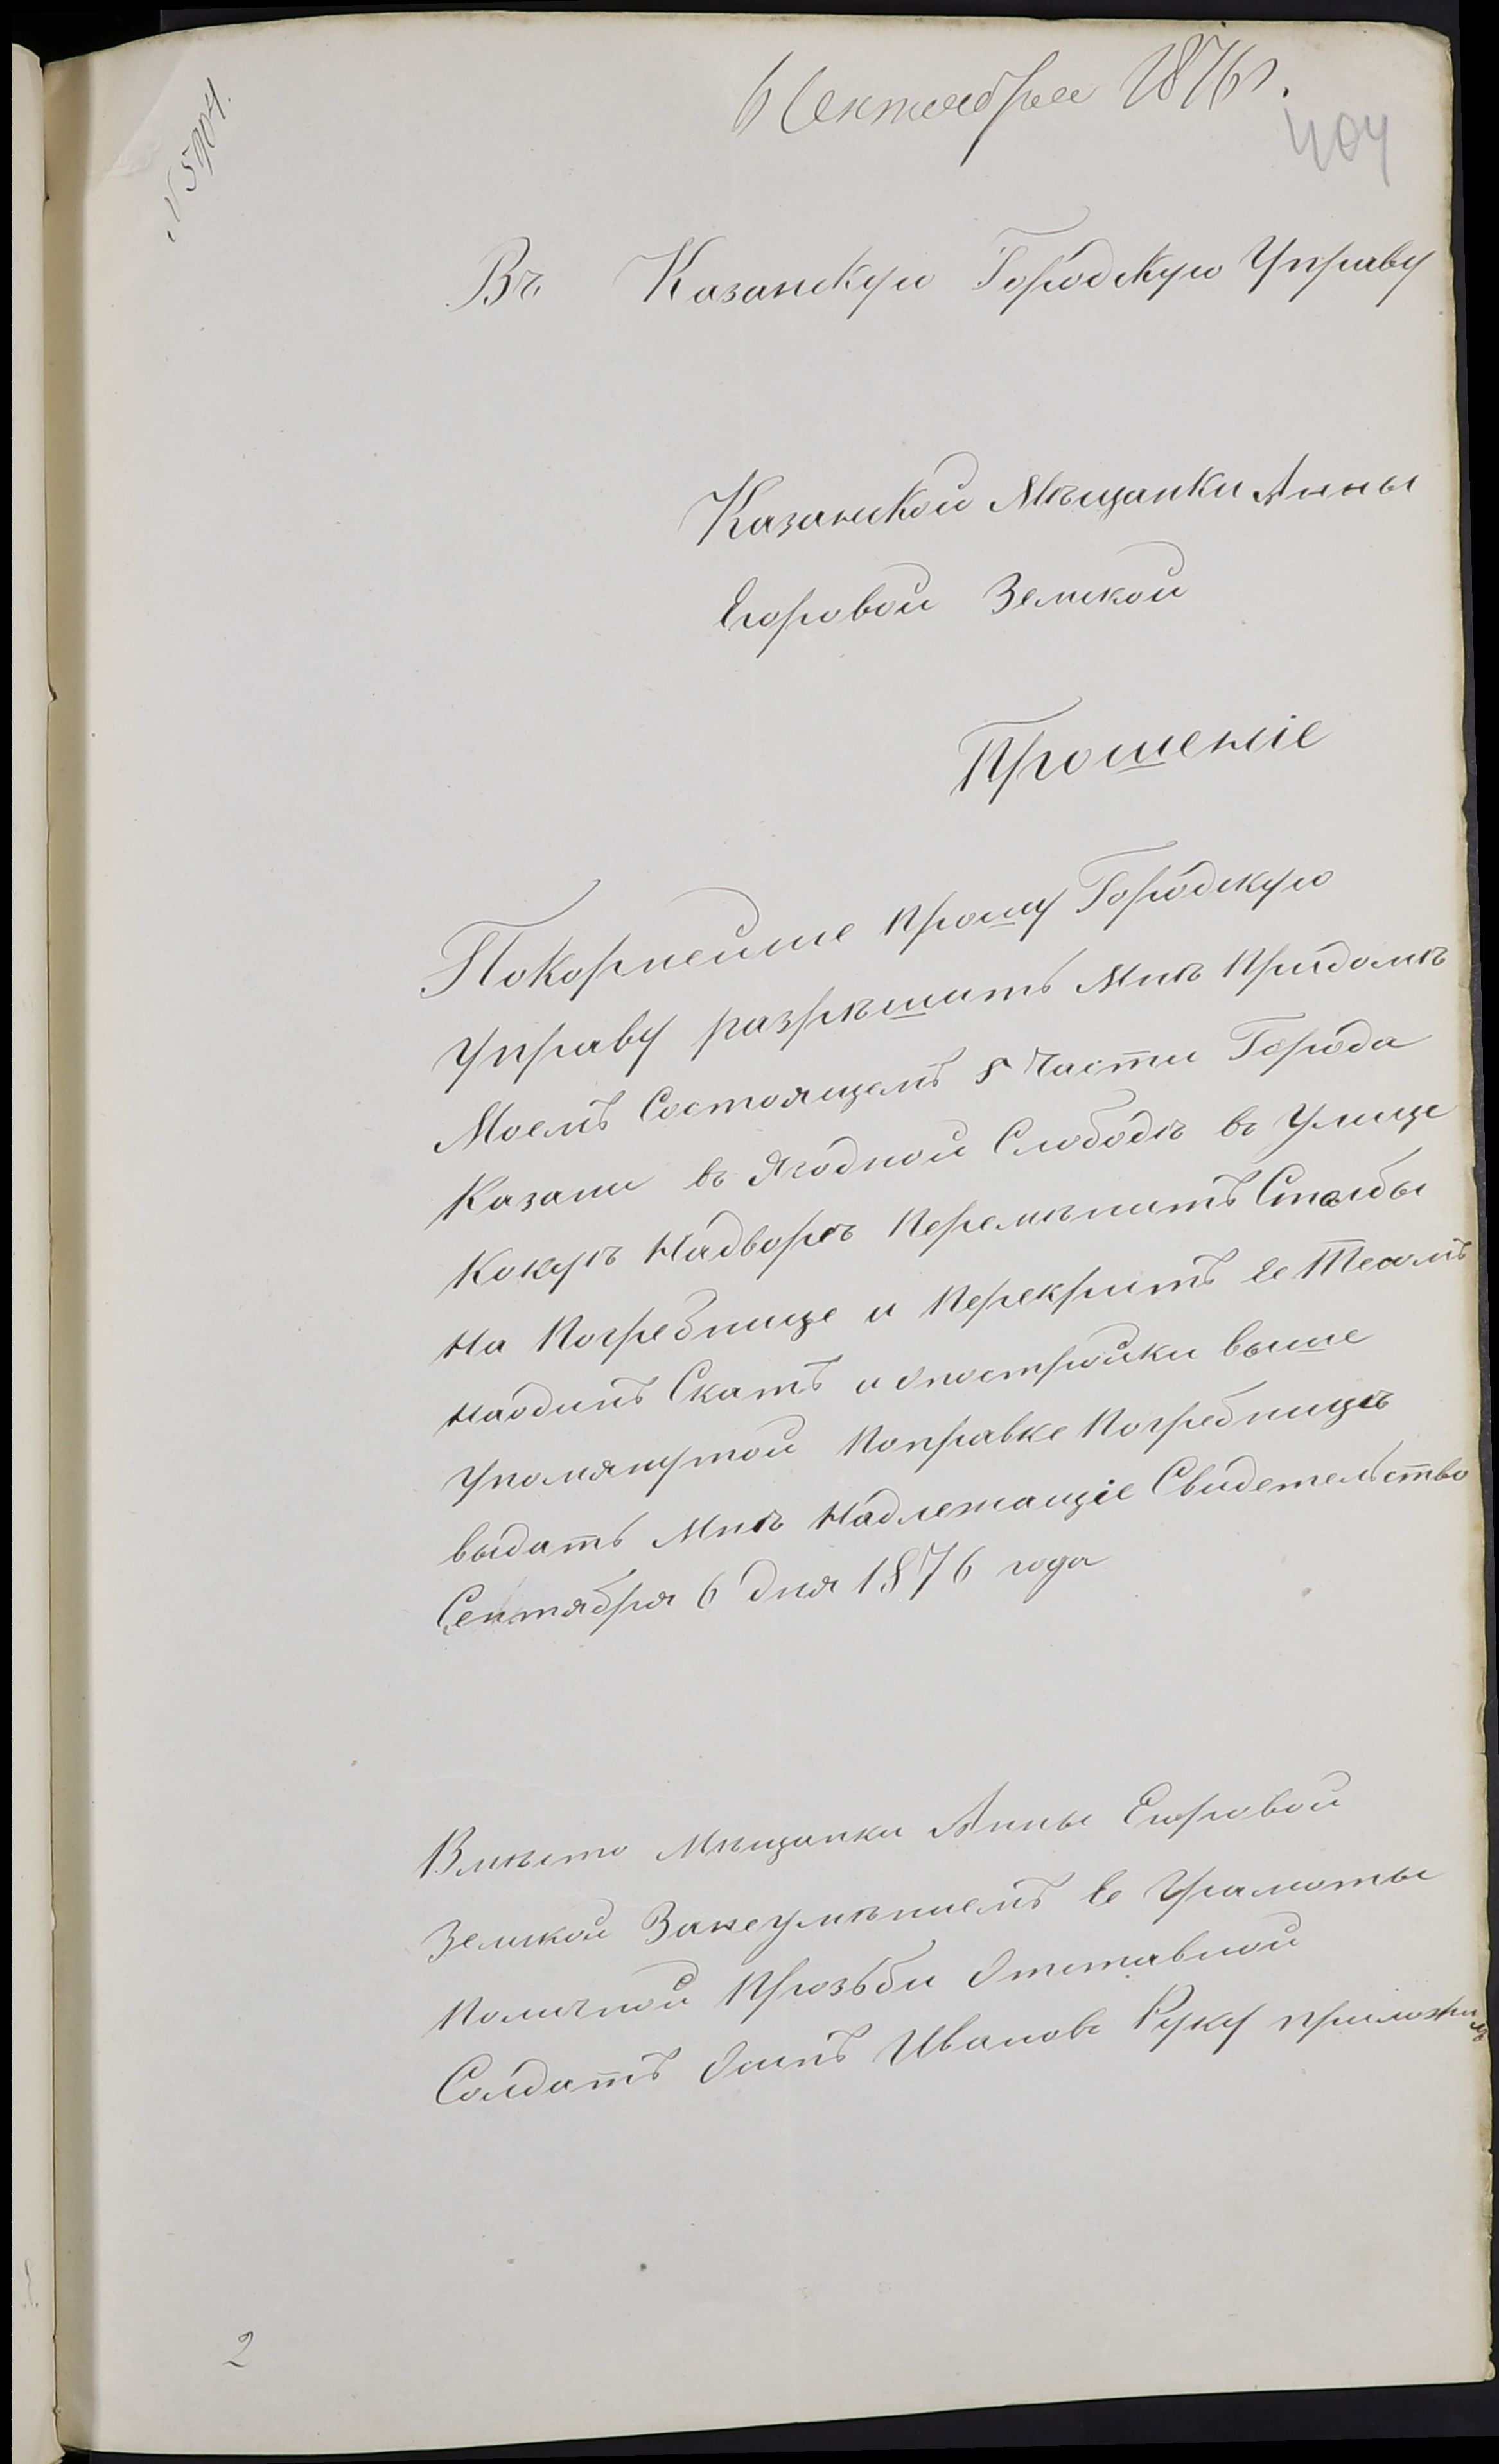 6 Сентября 1876 г.
404
N 5904.
Въ Казанскую Городскую Управу
Казанской Мѣщанки Анны
Егоровой Земской
Прошеніе
Покорнейше прошу Городскую
Управу разрѣшить Мнѣ Придомѣ
Моемъ Состоящемъ 5 Части Города
Казани въ Ягодной Слободѣ въ Улице
Кокуѣ Надворѣ Перемѣнить Столбы
На Погребнице и Перекрить Ее Тесомъ
Наодинъ Скатъ и Опостройки выше
Упомянутой Поправке Погребницѣ
выдать Мнѣ Надлежащіе Свидетельство
Сентября 6 дня 1876 года
Вмѣсто Мѣщанки Анны Егоровой
Земской Занеумѣнием Ее Грамоты
Поличной Прозьби Отставной
Солдатъ Иванов Руку приложилъ
2